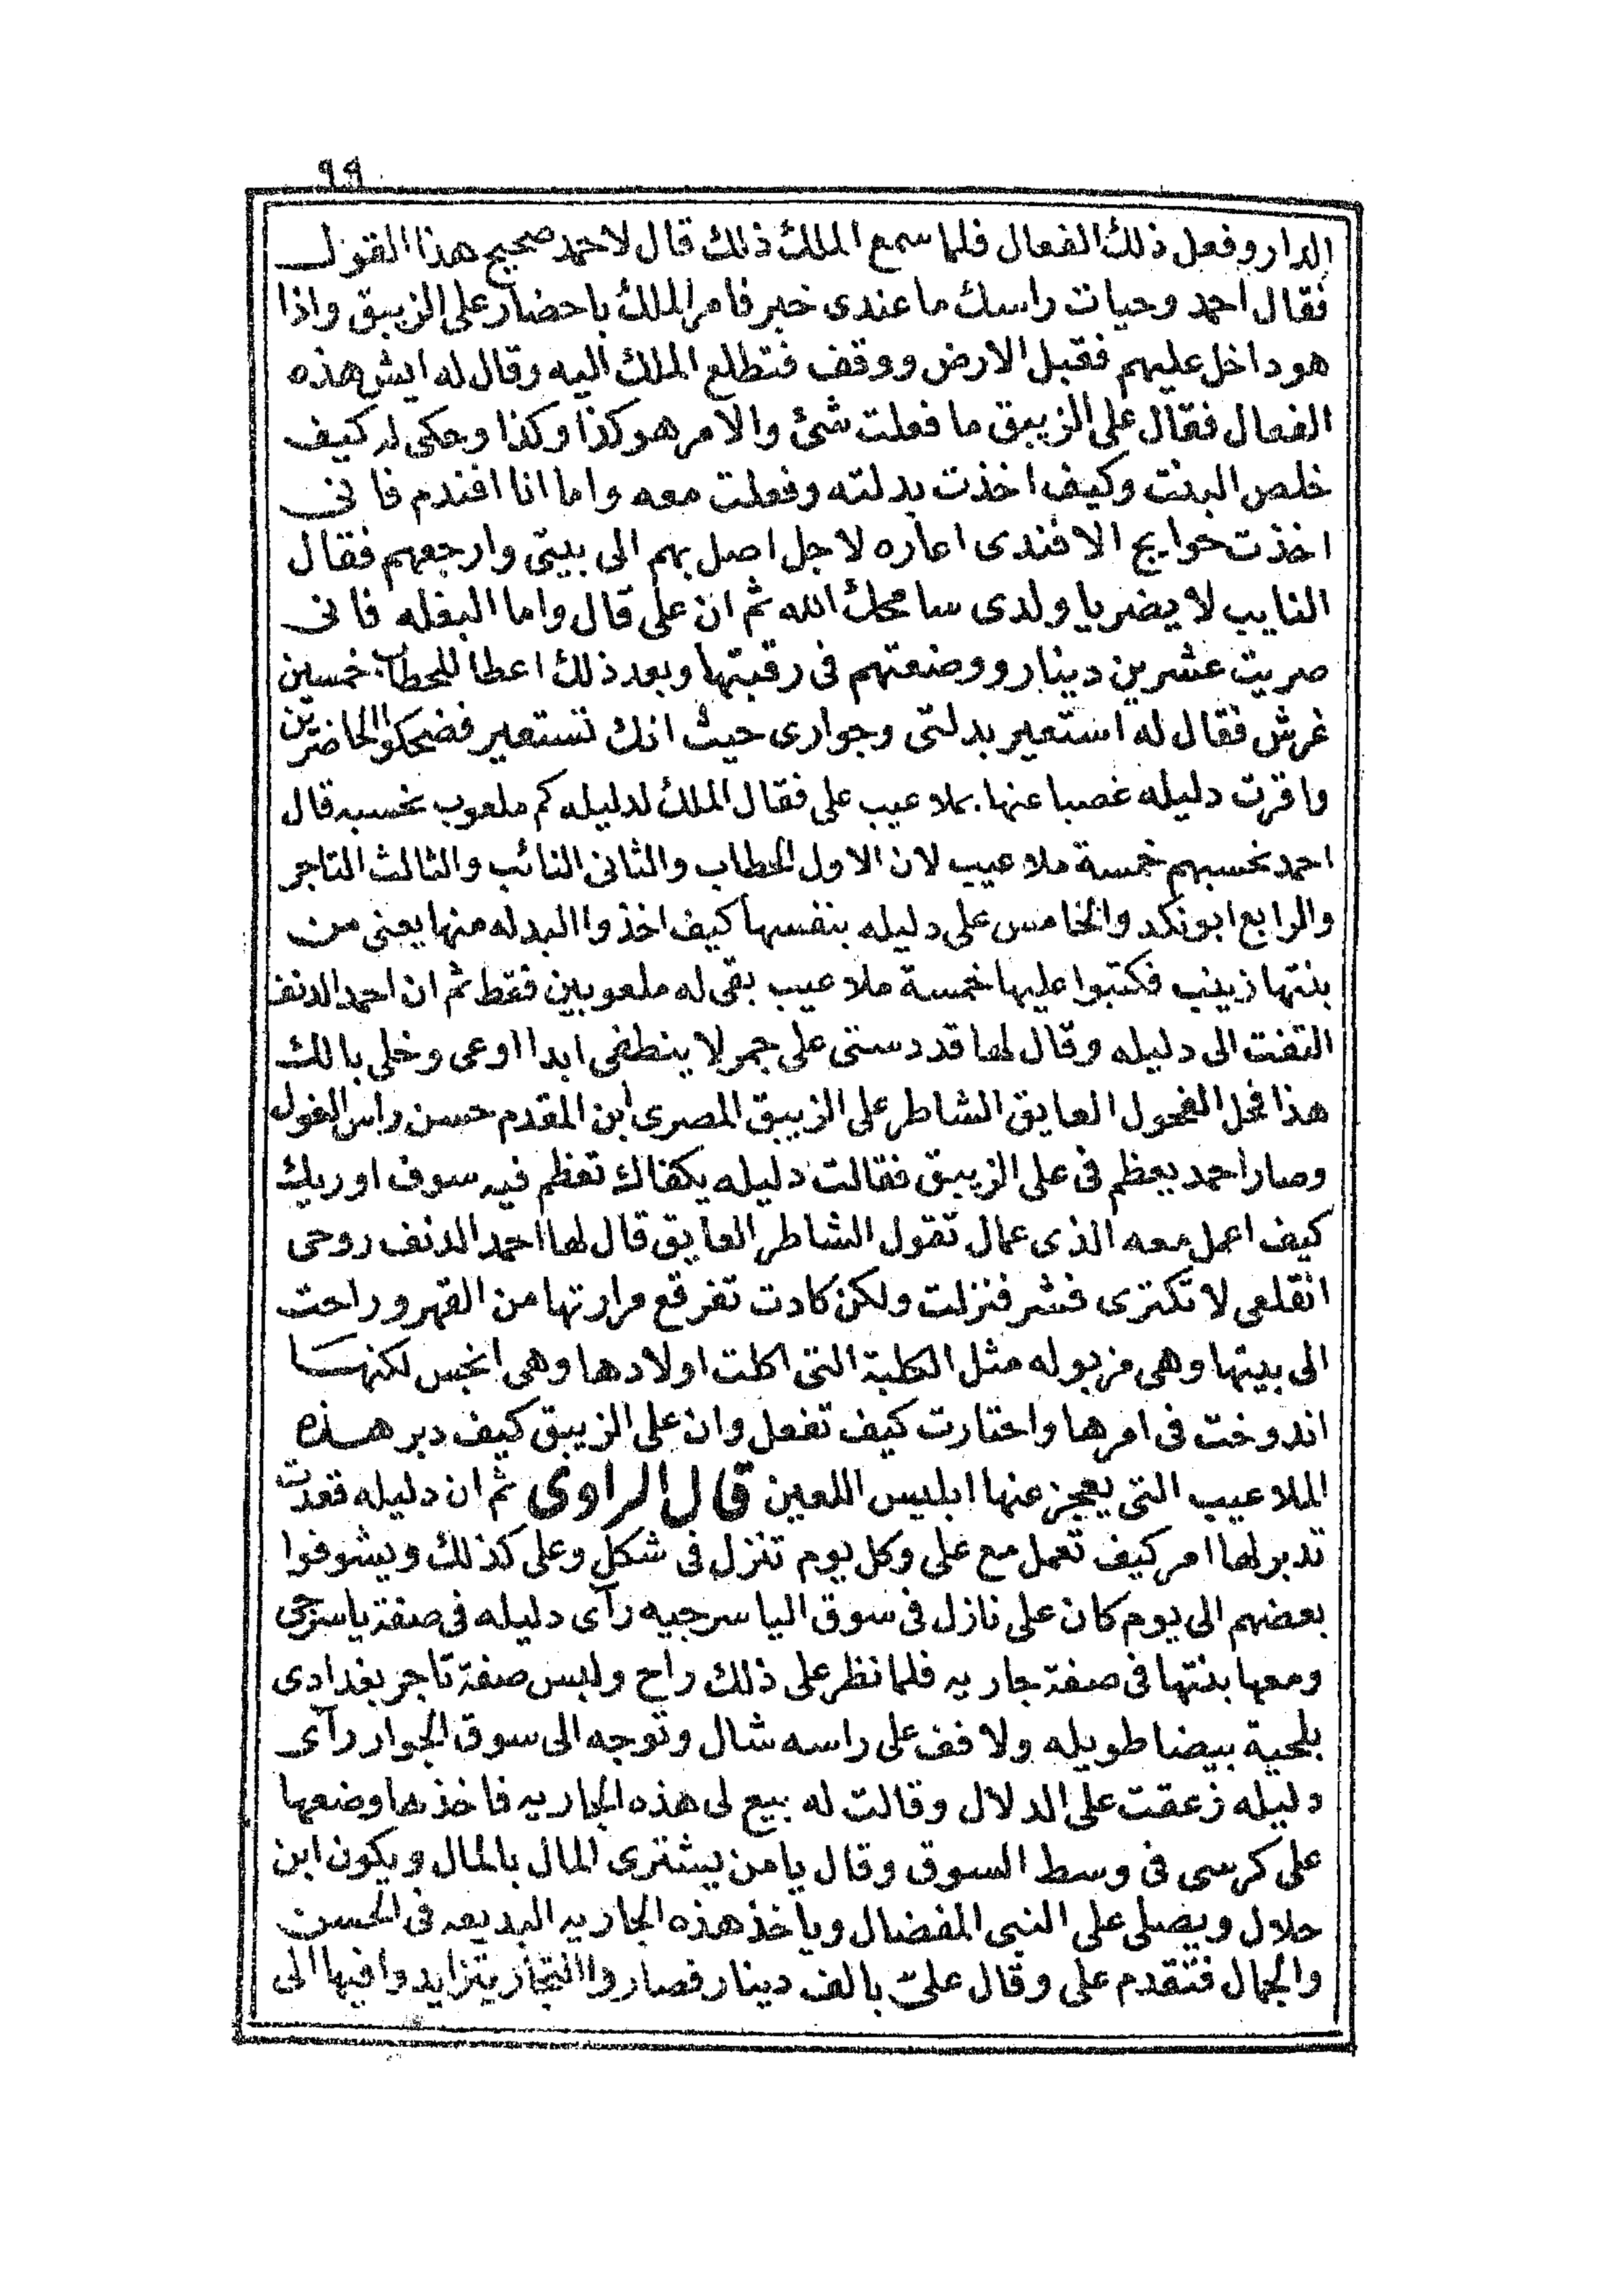 ٩٩
الدار وفعل ذلك الفعال فلما سمع الملك ذلك قال لاحمد صحيح هذا القول
فقال احمد وحيات راسك ما عندى خبر فامر الملك باحضار على الزيبق واذا
هو داخل عليهم فقبل الارض ووقف فتطلع الملك اليه وقال له ايش هذه
الفعال فقال على الزيبق ما فعلت شئ والامر هو كذا وكذا وحكى له كيف
خلص البنت وكيف اخذت بدلته وفعلت معه واما انا افندم فانى
اخذت حوايج الافندى اعاره لاجل اصل بهم الى بيتى وارجعهم فقال
النايب لا يضر يا ولدى سامحك الله ثم ان على قال واما البغله فانى
صريت عشرين دينار ووضعتهم فى رقبتها وبعد ذلك اعطا للحطاب خمسين
غرش فقال له استعير بدلتى وجوارى حيث انك تستعير فضحكوا الحاضرين
واقرت دليله غصبا عنها بملاعيب على فقال الملك لدليله كم ملعوب نحسبه قال
احمد نحسبهم خمسة ملاعيب لان الاول الحطاب والثانى النائب والثالث التاجر
والرابع ابونكد والخامس على دليله بنفسها كيف اخذوا البدله منها يعنى من
بنتها زينب فكتبوا عليها خمسة ملاعيب بقى له ملعوبين فقط ثم ان احمد الدنف
التفت الى دليله وقال لها قد دستى على جمر لا ينطفى ابدا اوعى وخلى بالك
هذا فحل الفحول العايق الشاطر على الزيبق المصرى ابن المقدم حسن راس الغول
وصار احمد يعظم فى على الزيبق فقالت دليله يكفاك تعظم فيه سوف اوريك
كيف اعمل معه الذى عمال تقول الشاطر العايق قال لها احمد الدنف روحى
انقلعى لا تكترى فشر فنزلت ولكن كادت تفرقع مرارتها من القهر وراحت
الى بيتها وهى مزبوله مثل الكلبة التى اكلت اولادها وهى انجس لكنها
اندوخت فى امرها واحتارت كيف تفعل وان على الزيبق كيف دبر هذه
الملاعيب التى يعجز عنها ابليس اللعين قال الراوى ثم ان دليله قعدت
تدبر لها امر كيف تعمل مع على وكل يوم تنزل فى شكل وعلى كذلك ويشوفوا
بعضهم الى يوم كان على نازل فى سوق الياسرجيه رآى دليله فى صفة ياسرجى
ومعها بنتها فى صفة جاريه فلما نظر على ذلك راح ولبس صفة تاجر بغدادى
بلحية بيضا طويله ولافف على راسه شال وتوجه الى سوق الجوار رآى
دليله زعقت على الدلال وقالت له بيع لى هذه الجاريه فاخذها وضعها
على كرسى فى وسط السوق وقال يامن يشترى المال بالمال ويكون ابن
حلال ويصلى على النبى المفضال وياخذ هذه الجاريه البديعه فى الحسن
والجمال فتقدم على وقال علىّ بالف دينار فصاروا التجار يتزايدوا فيها الى